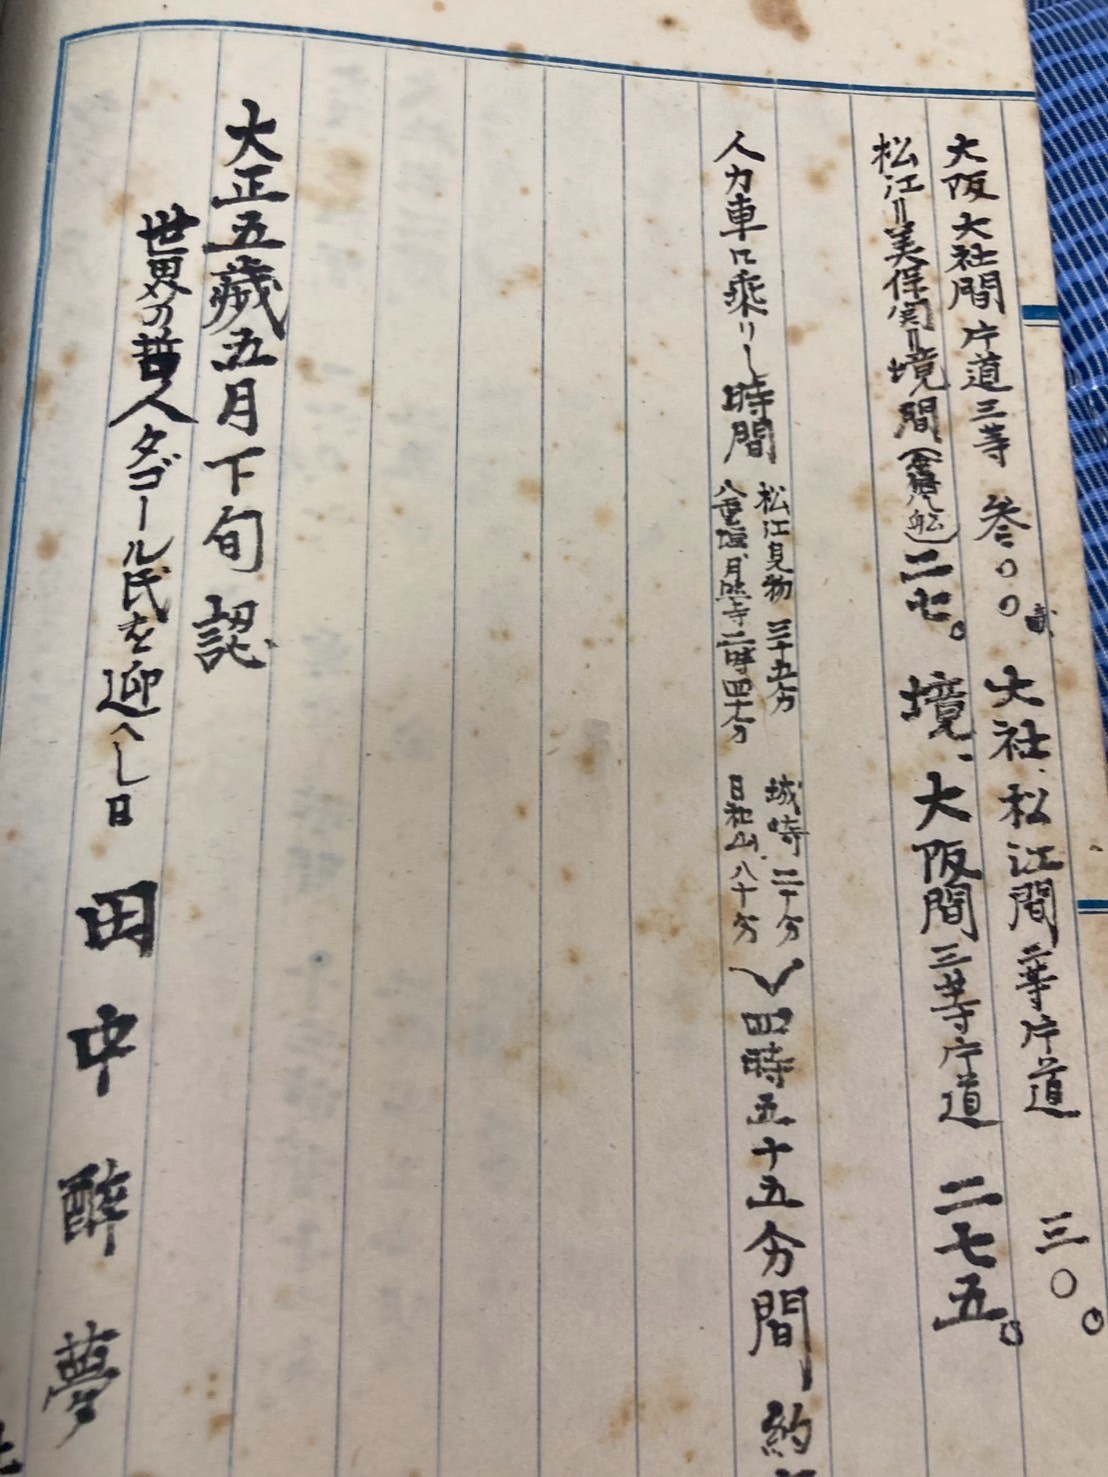 大阪大社間汽道三等 参〇〇 大社、松江間三等汽道 三〇。
松江=美保関=境間(合同汽船)二七。境、大阪間三等汽道 二七五。
人力車ニ乗リシ時間 松江見物 三十五分 城崎 二十分
八重垣月照寺二時四十分 日和山、八十分
四時五十五分間 約
大正五歳五月下旬認
世界の哲人タゴール氏を迎へし日 田中酔夢